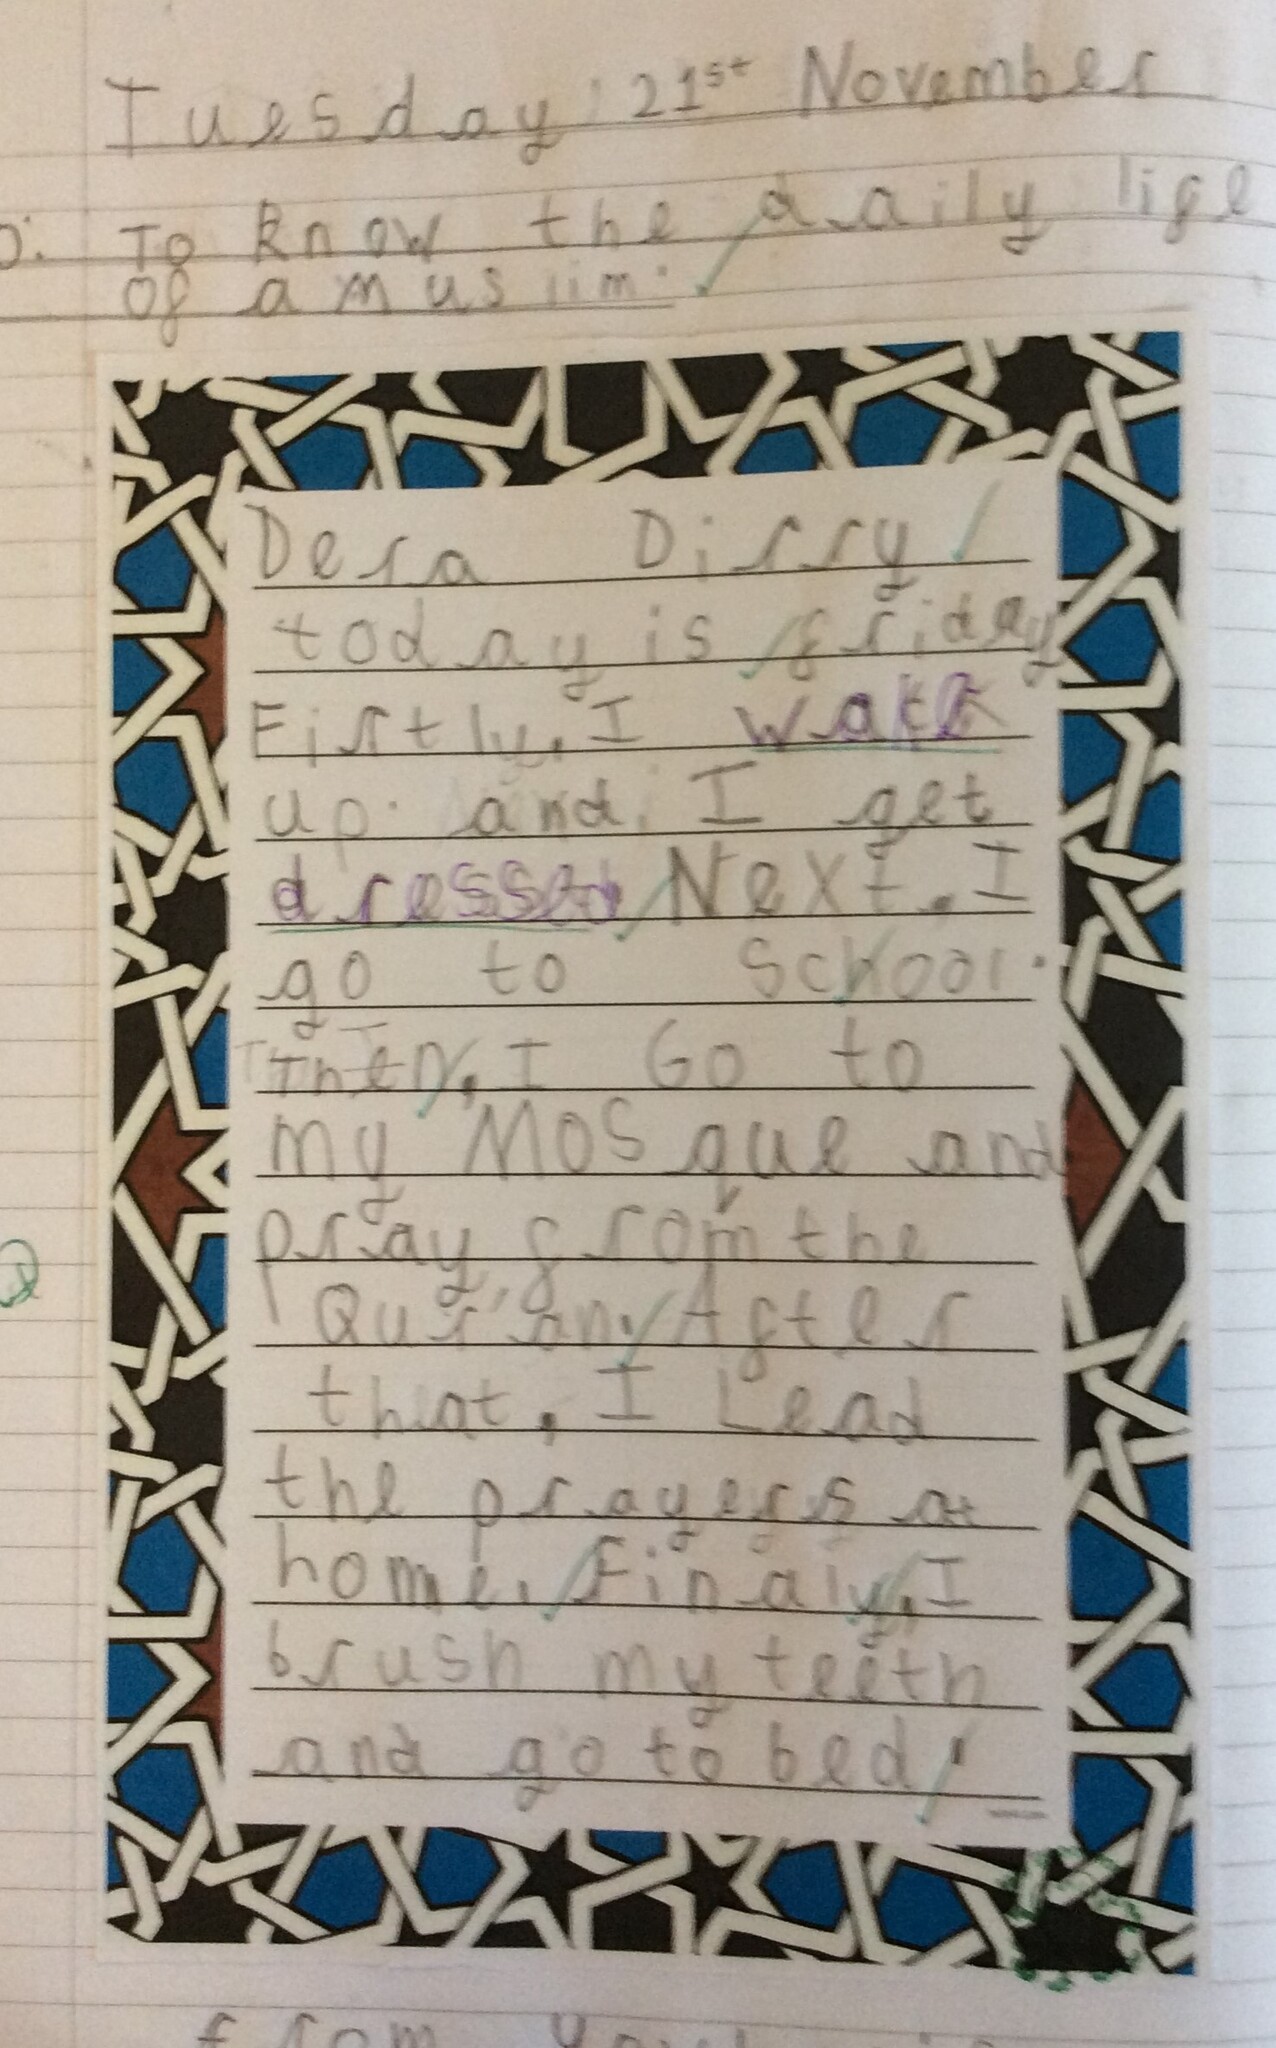 Tuesday 21st November
o: To know the daily life
of a muslim.
Dera Dirry
today is friday
Firtly, I wake
up. and, I get
dressed Next, I
go to school.
Then, I Go to
my MOSque and
pray, from the
Qur'an. After
that, I Lead
the prayers at
home. Finaly, I
brush my teeth
and go to bed!
from your